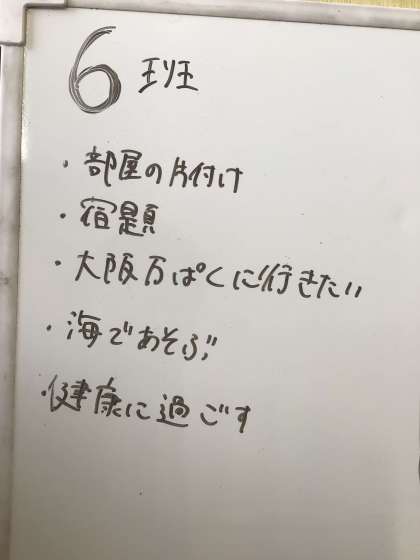 6 班
・部屋の片付け
・宿題
・大阪万ぱくに行きたい
・海であそぶ
・健康に過ごす